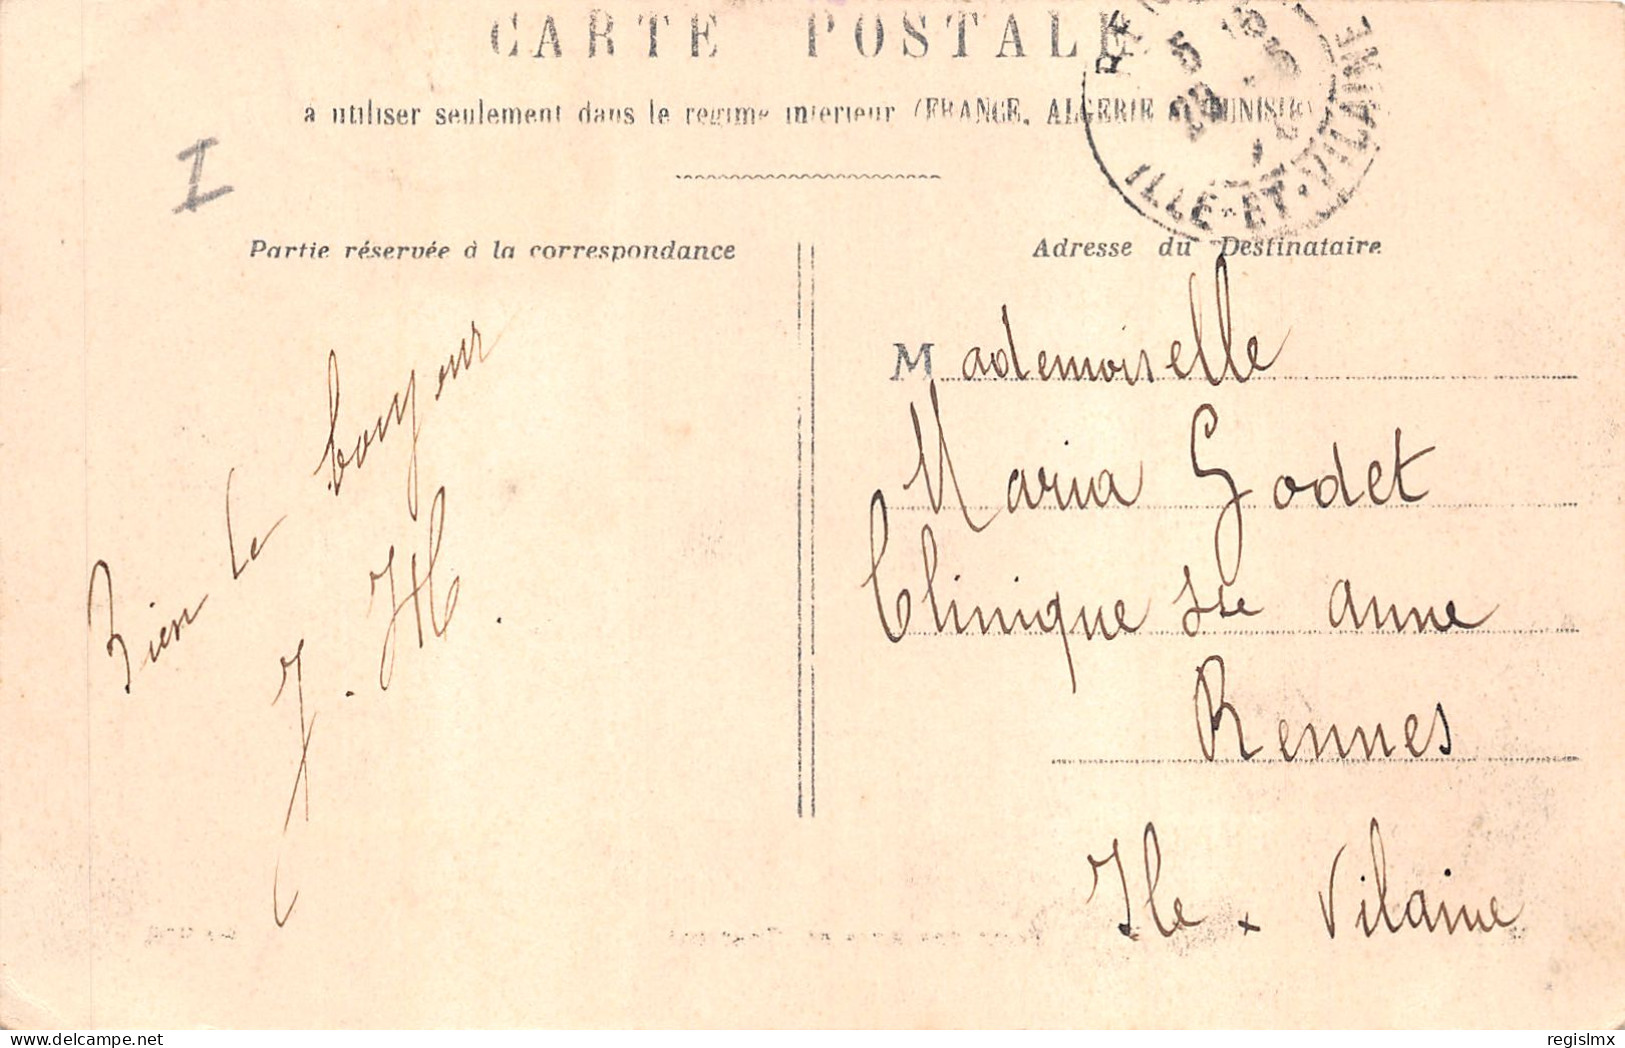 CARTE POSTALE
à utiliser seulement dans le régime intérieur (FRANCE, ALGERIE & TUNISIE)
ILLE-ET-VILAINE
I
Partie réservée à la correspondance
Adresse du Destinataire
Bien le bonjour
J. H.
Mademoiselle
Maria Godet
Clinique Ste Anne
Rennes
Ile x Vilaine
regislmx
delcampe.net